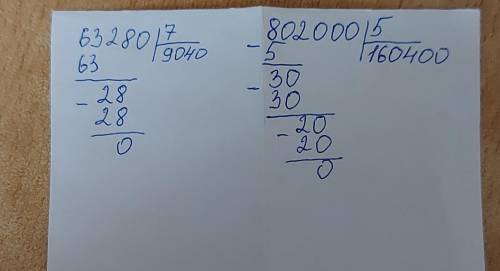 63280 | 7
63 9040
- 28
28
0
- 802000 | 5
5 160400
- 30
30
- 20
20
0